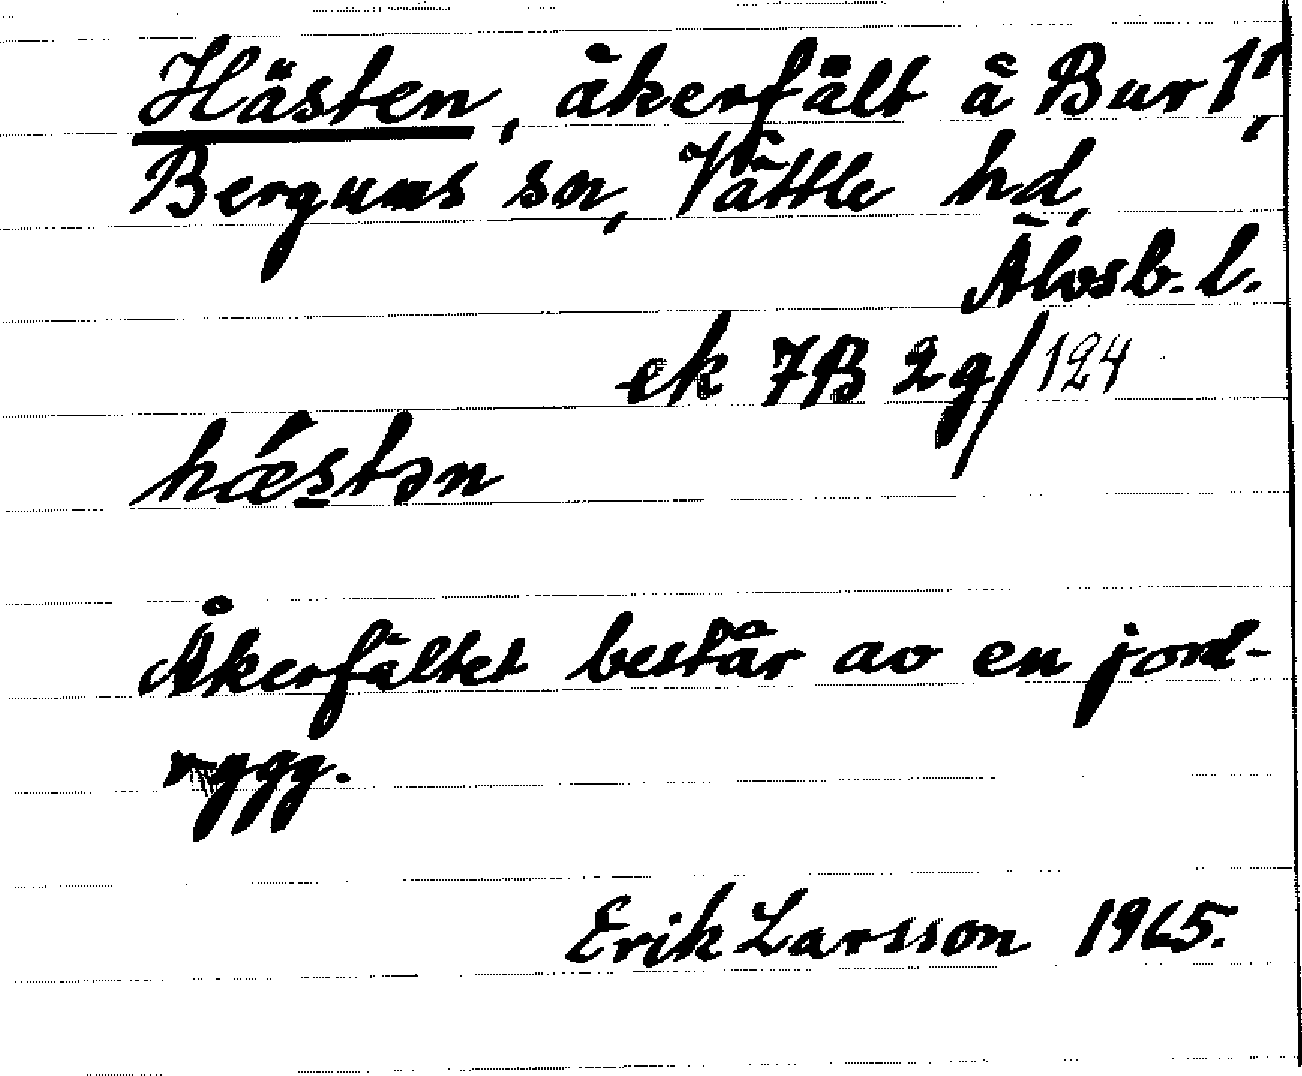 Hästen, åkerfält å Bur 1:1,
Bergums sn, Vättle hd,
Älvsb. l.
ek 7B 2g/124
hǽstən
Åkerfältet består av en jord-
rygg.
Erik Larsson 1965.